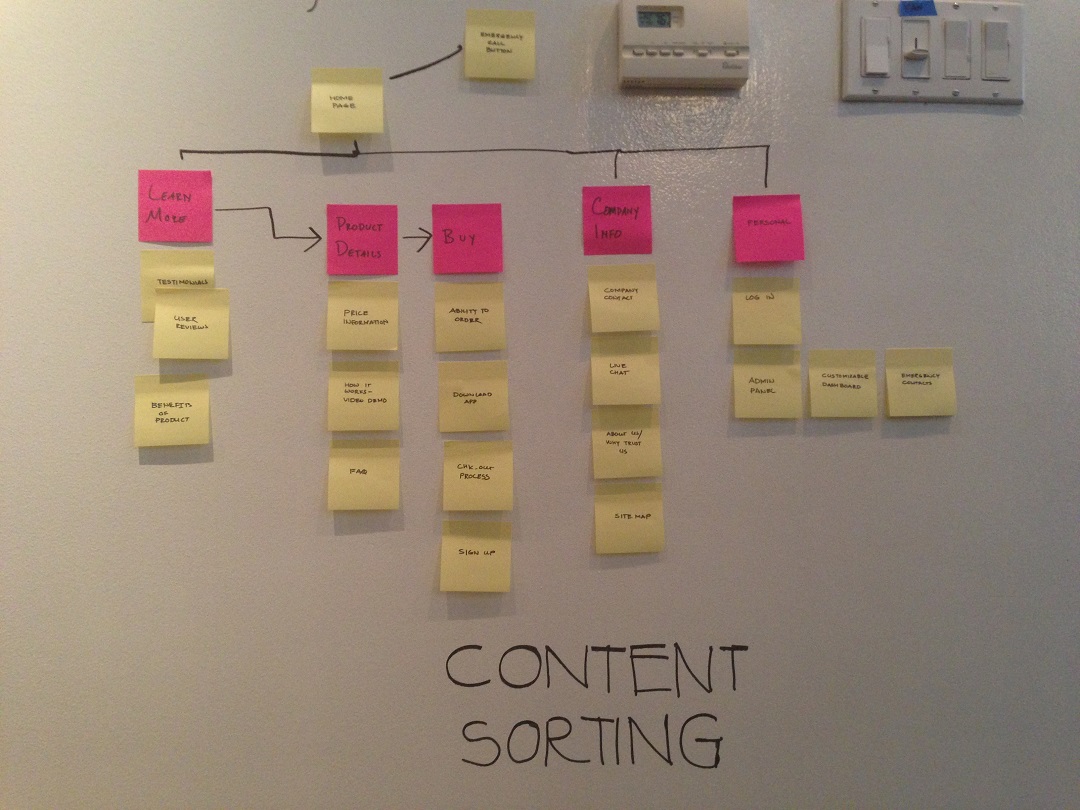 EMERGENCY
CALL
BUTTON
HOME
PAGE
LEARN
MORE
TESTIMONIALS
USER
REVIEWS
BENEFITS
OF
PRODUCT
PRODUCT
DETAILS
PRICE
INFORMATION
HOW IT
WORKS-
VIDEO DEMO
FAQ
BUY
ABILITY TO
ORDER
DOWNLOAD
APP
CHK-OUT
PROCESS
SIGN UP
COMPANY
INFO
COMPANY
CONTACT
LIVE
CHAT
ABOUT US/
WHY TRUST
US
SITE MAP
PERSONAL
LOG IN
ADMIN
PANEL
CUSTOMIZABLE
DASHBOARD
EMERGENCY
CONTACTS
CONTENT
SORTING